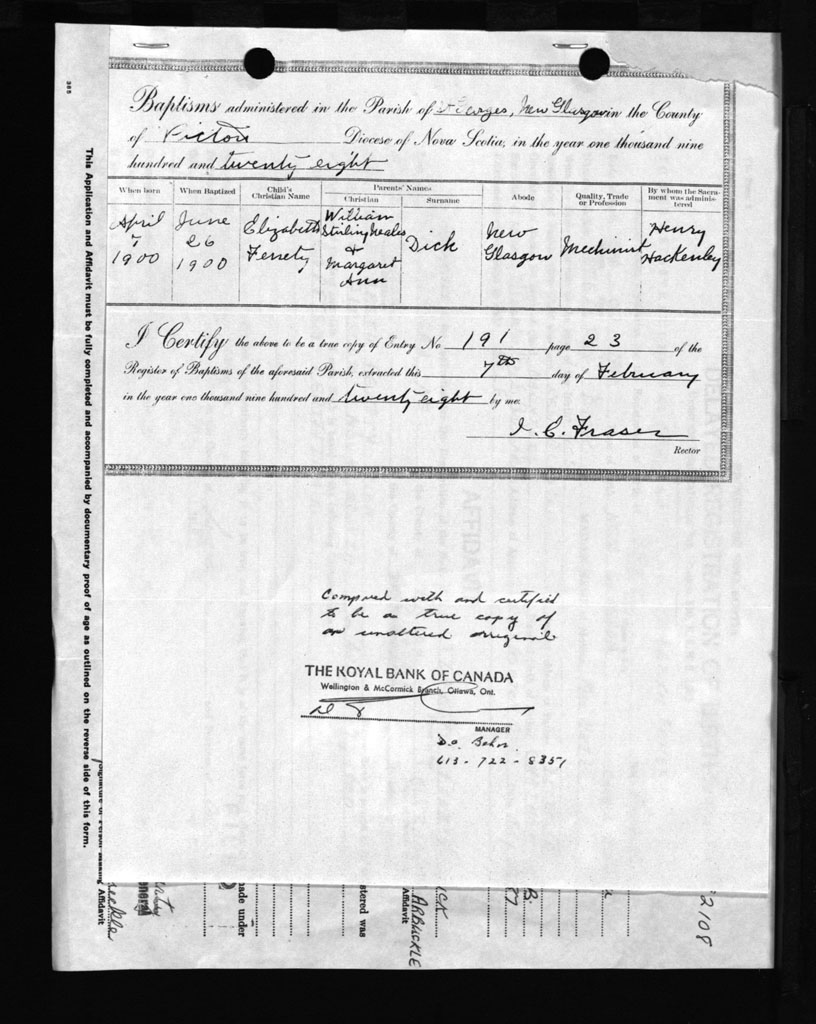 Baptisms administered in the Parish of St Georges, New Glasgow in the County
of Pictou Diocese of Nova Scotia, in the year one thousand nine
hundred and twenty eight
When born
When Baptized
Child's
Christian Name
Parents' Names
Christian
Surname
Abode
Quality, Trade
or Profession
By whom the Sacra-
ment was adminis-
tered
April
7
1900
June
26
1900
Elizabeth
Fenety
William
Stirling
&
Margaret
Ann
Dick
New
Glasgow
Mechinist
Henry
Hackenley
I Certify the above to be a true copy of Entry No 191 page 23 of the
Register of Baptisms of the aforesaid Parish, extracted this 7th day of February
in the year one thousand nine hundred and twenty eight by me.
I. C. Fraser
Rector
Compared with and certified
to be a true copy of
an unaltered original
THE ROYAL BANK OF CANADA
Wellington & McCormick Branch, Ottawa, Ont.
MANAGER
D.O.
613-722-8351
This Application and Affidavit must be fully completed and accompanied by documentary proof of age as outlined on the reverse side of this form.
Affidavit
ade under
stered was
Affidavit
ARBUCKLE
ICK
2108